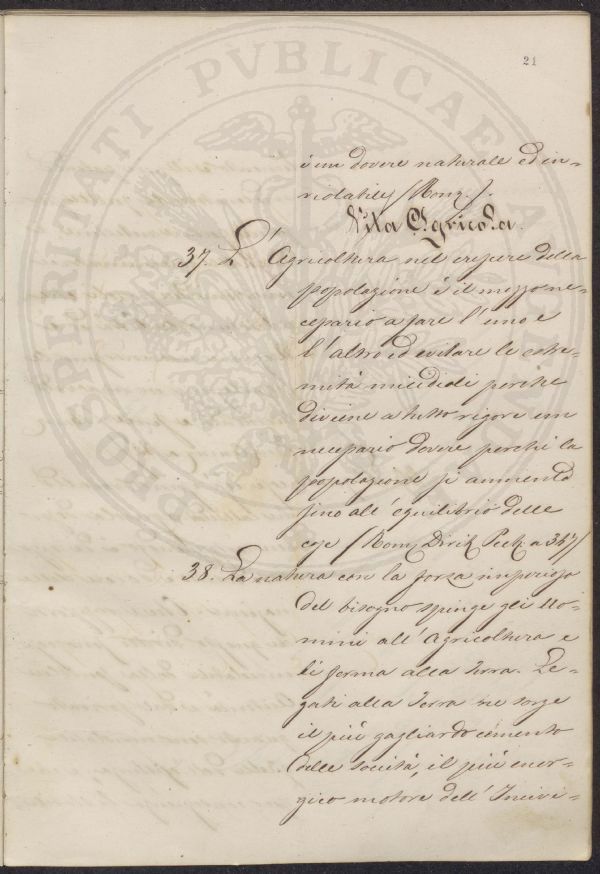 21
è un dovere naturale ed in-
violabile (Romg.).
Vita Agricola.
37. L'Agricoltura nel crescere della
popolazione è il mezzo ne-
cessario a fare l'uno e
l'altro ed evitare le estre-
mità micidiali perché
diviene a tutto rigore un
necessario dovere perché la
popolazione si aumenta
fino all'equilibrio delle
cose (Romg. Dirit. 347)
38. La natura con la forza imperiosa
del bisogno spinge gli Uo-
mini all'Agricoltura e
li ferma alla terra. Le-
gati alla Terra ne sorge
il più gagliardo cemento
delle società, il più ener-
gico motore dell'Incivi-
PROSPERITATI PVBLICAE